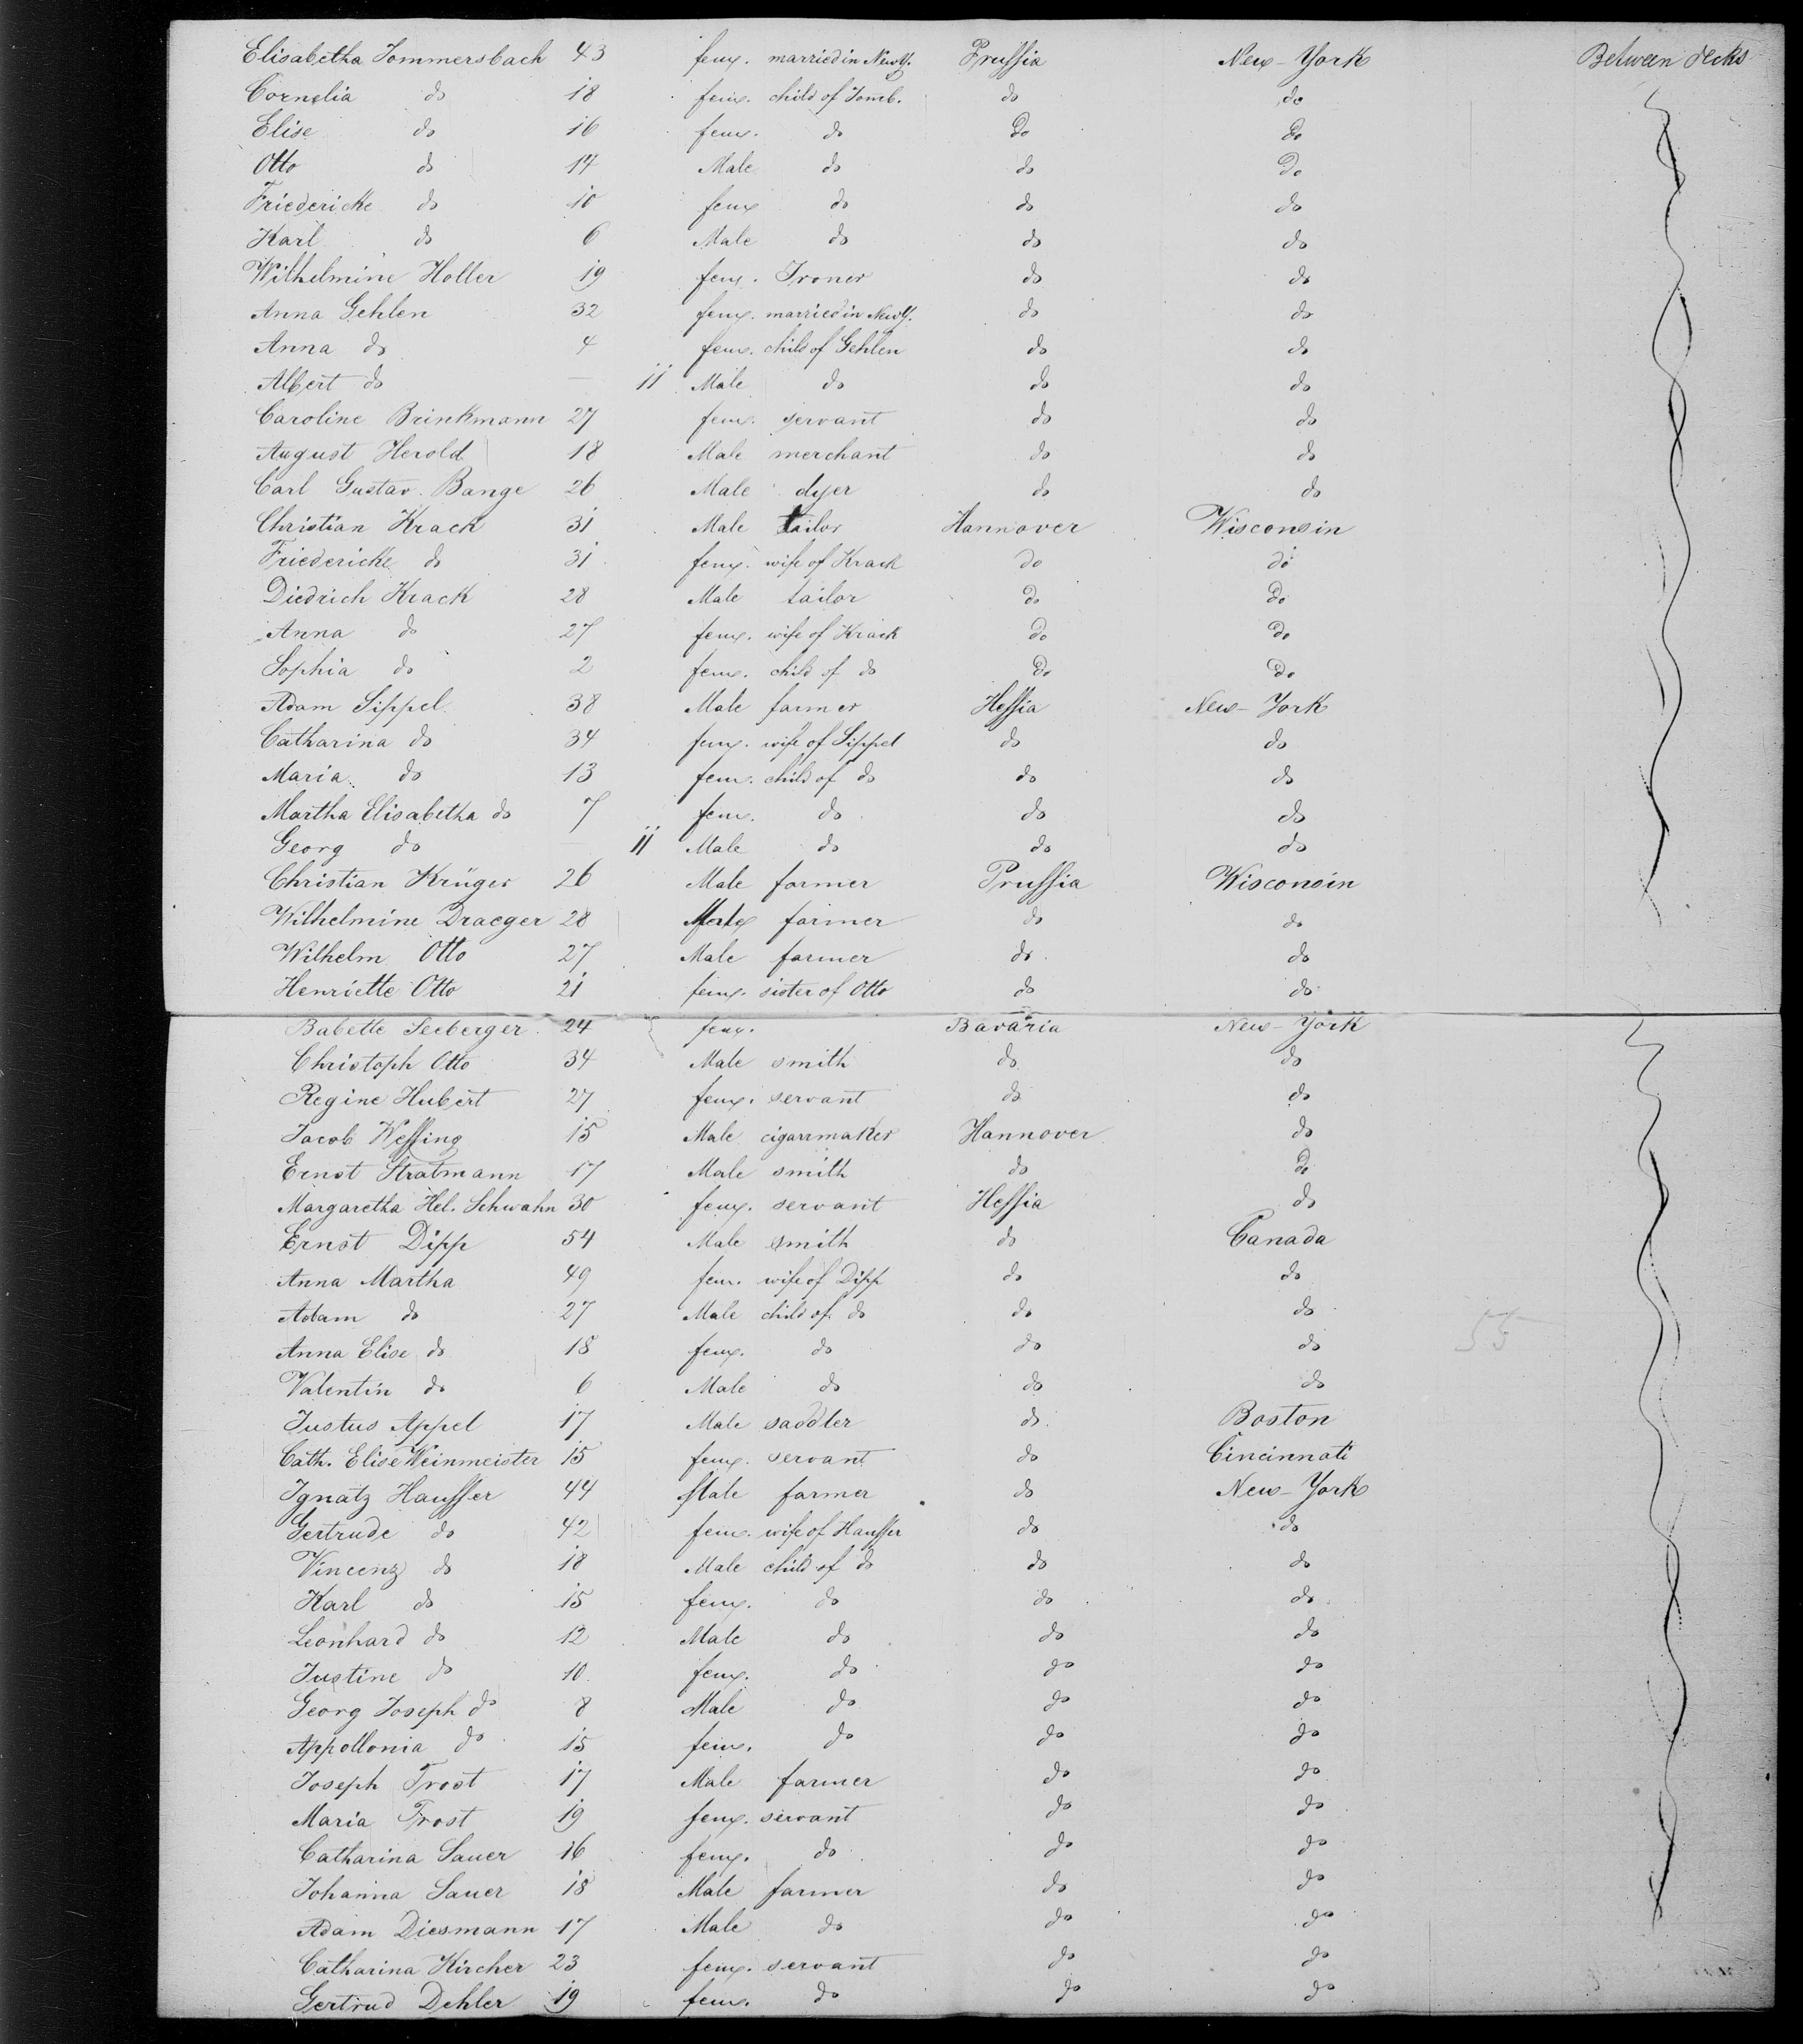 Elisabetha Sommersbach 43 fem. married in NewY. Prussia New-York Between decks
Cornelia do 18 fem. child of Somb. do do
Elise do 16 fem. do do do
Otto do 14 Male do do do
Friedericke do 10 fem do do do
Karl do 6 Male do do do
Wilhelmine Holler 19 fem. Ironer do do
Anna Gehlen 32 fem. married in NewY. do do
Anna do 4 fem. child of Gehlen do do
Albert do — 11 Male do do do
Caroline Brinkmann 27 fem. servant do do
August Herold 18 Male merchant do do
Carl Gustav. Bange 26 Male dyer do do
Christian Krack 31 Male tailor Hannover Wisconsin
Friedericke do 31 fem. wife of Krack do do
Diedrich Krack 28 Male tailor do do
Anna do 27 fem. wife of Krack do do
Sophia do 2 fem. child of do do do
Adam Sippel 38 Male farmer Hessia New-York
Catharina do 34 fem. wife of Sippel do do
Maria do 13 fem. child of do do do
Martha Elisabetha do 7 fem. do do do
Georg do 11 Male do do do
Christian Krüger 26 Male farmer Prussia Wisconsin
Wilhelmine Draeger 28 farmer do do
Wilhelm Otto 27 Male farmer do do
Henriette Otto 21 fem. sister of Otto do do
Babette Seeberger 24 fem. Bavaria New-York
Christoph Otto 34 Male smith do do
Regine Hubert 27 fem. servant do do
Jacob Wessing 15 Male cigarrmaker Hannover do
Ernst Stratmann 17 Male smith do do
Margaretha Hel. Schwahn 30 fem. servant Hessia do
Ernst Dipp 54 Male smith do Canada
Anna Martha 49 fem. wife of Dipp do do
Adam do 27 Male child of do do do
Anna Elise do 18 fem. do do do
Valentin do 6 Male do do do
Justus Appel 17 Male saddler do Boston
Cath. Elise Weinmeister 15 fem. servant do Cincinnati
Ignatz Hausser 44 Male farmer do New-York
Gertrude do 42 fem. wife of Hausser do do
Vincenz do 18 Male child of do do do
Karl do 15 fem. do do do
Leonhard do 12 Male do do do
Justine do 10 fem. do do do
Georg Joseph do 8 Male do do do
Appollonia do 15 fem. do do do
Joseph Trost 17 Male farmer do do
Maria Trost 19 fem. servant do do
Catharina Sauer 16 fem. do do do
Johanna Sauer 18 Male farmer do do
Adam Diesmann 17 Male do do do
Catharina Kircher 23 fem. servant do do
Gertrud Dehler 19 fem. do do do